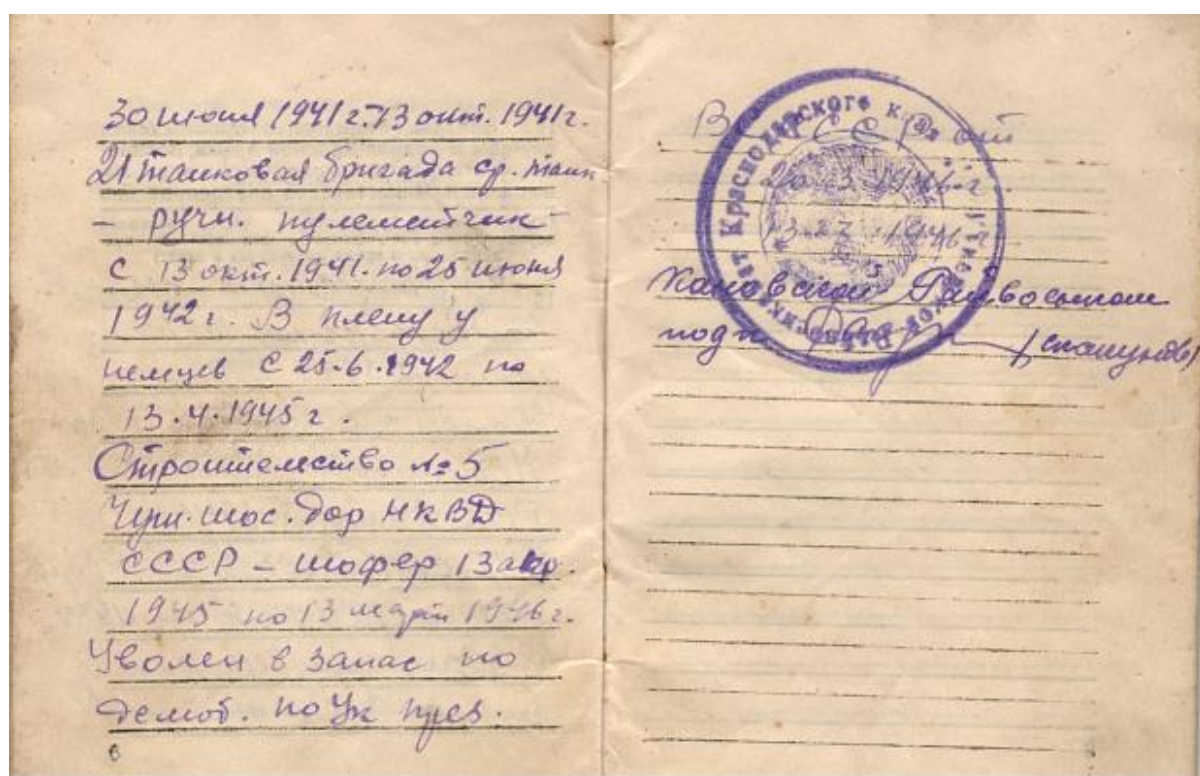 30 июня 1941 г. 13 окт. 1941 г.
21 танковая бригада ср. танк
– ручн. пулеметчик
С 13 окт. 1941. по 25 июня
1942 г. В плену у
немцев С 25.6.1942 по
13.4.1945 г.
Строительство № 5
шос. дор НКВД
СССР – шофер 13 апр.
1945 по 13 март 1946 г.
Уволен в запас по
демоб. по Ук през.
6
В от
1946 г.
1946 г.
Райвоенком
подп
Краснодарского края